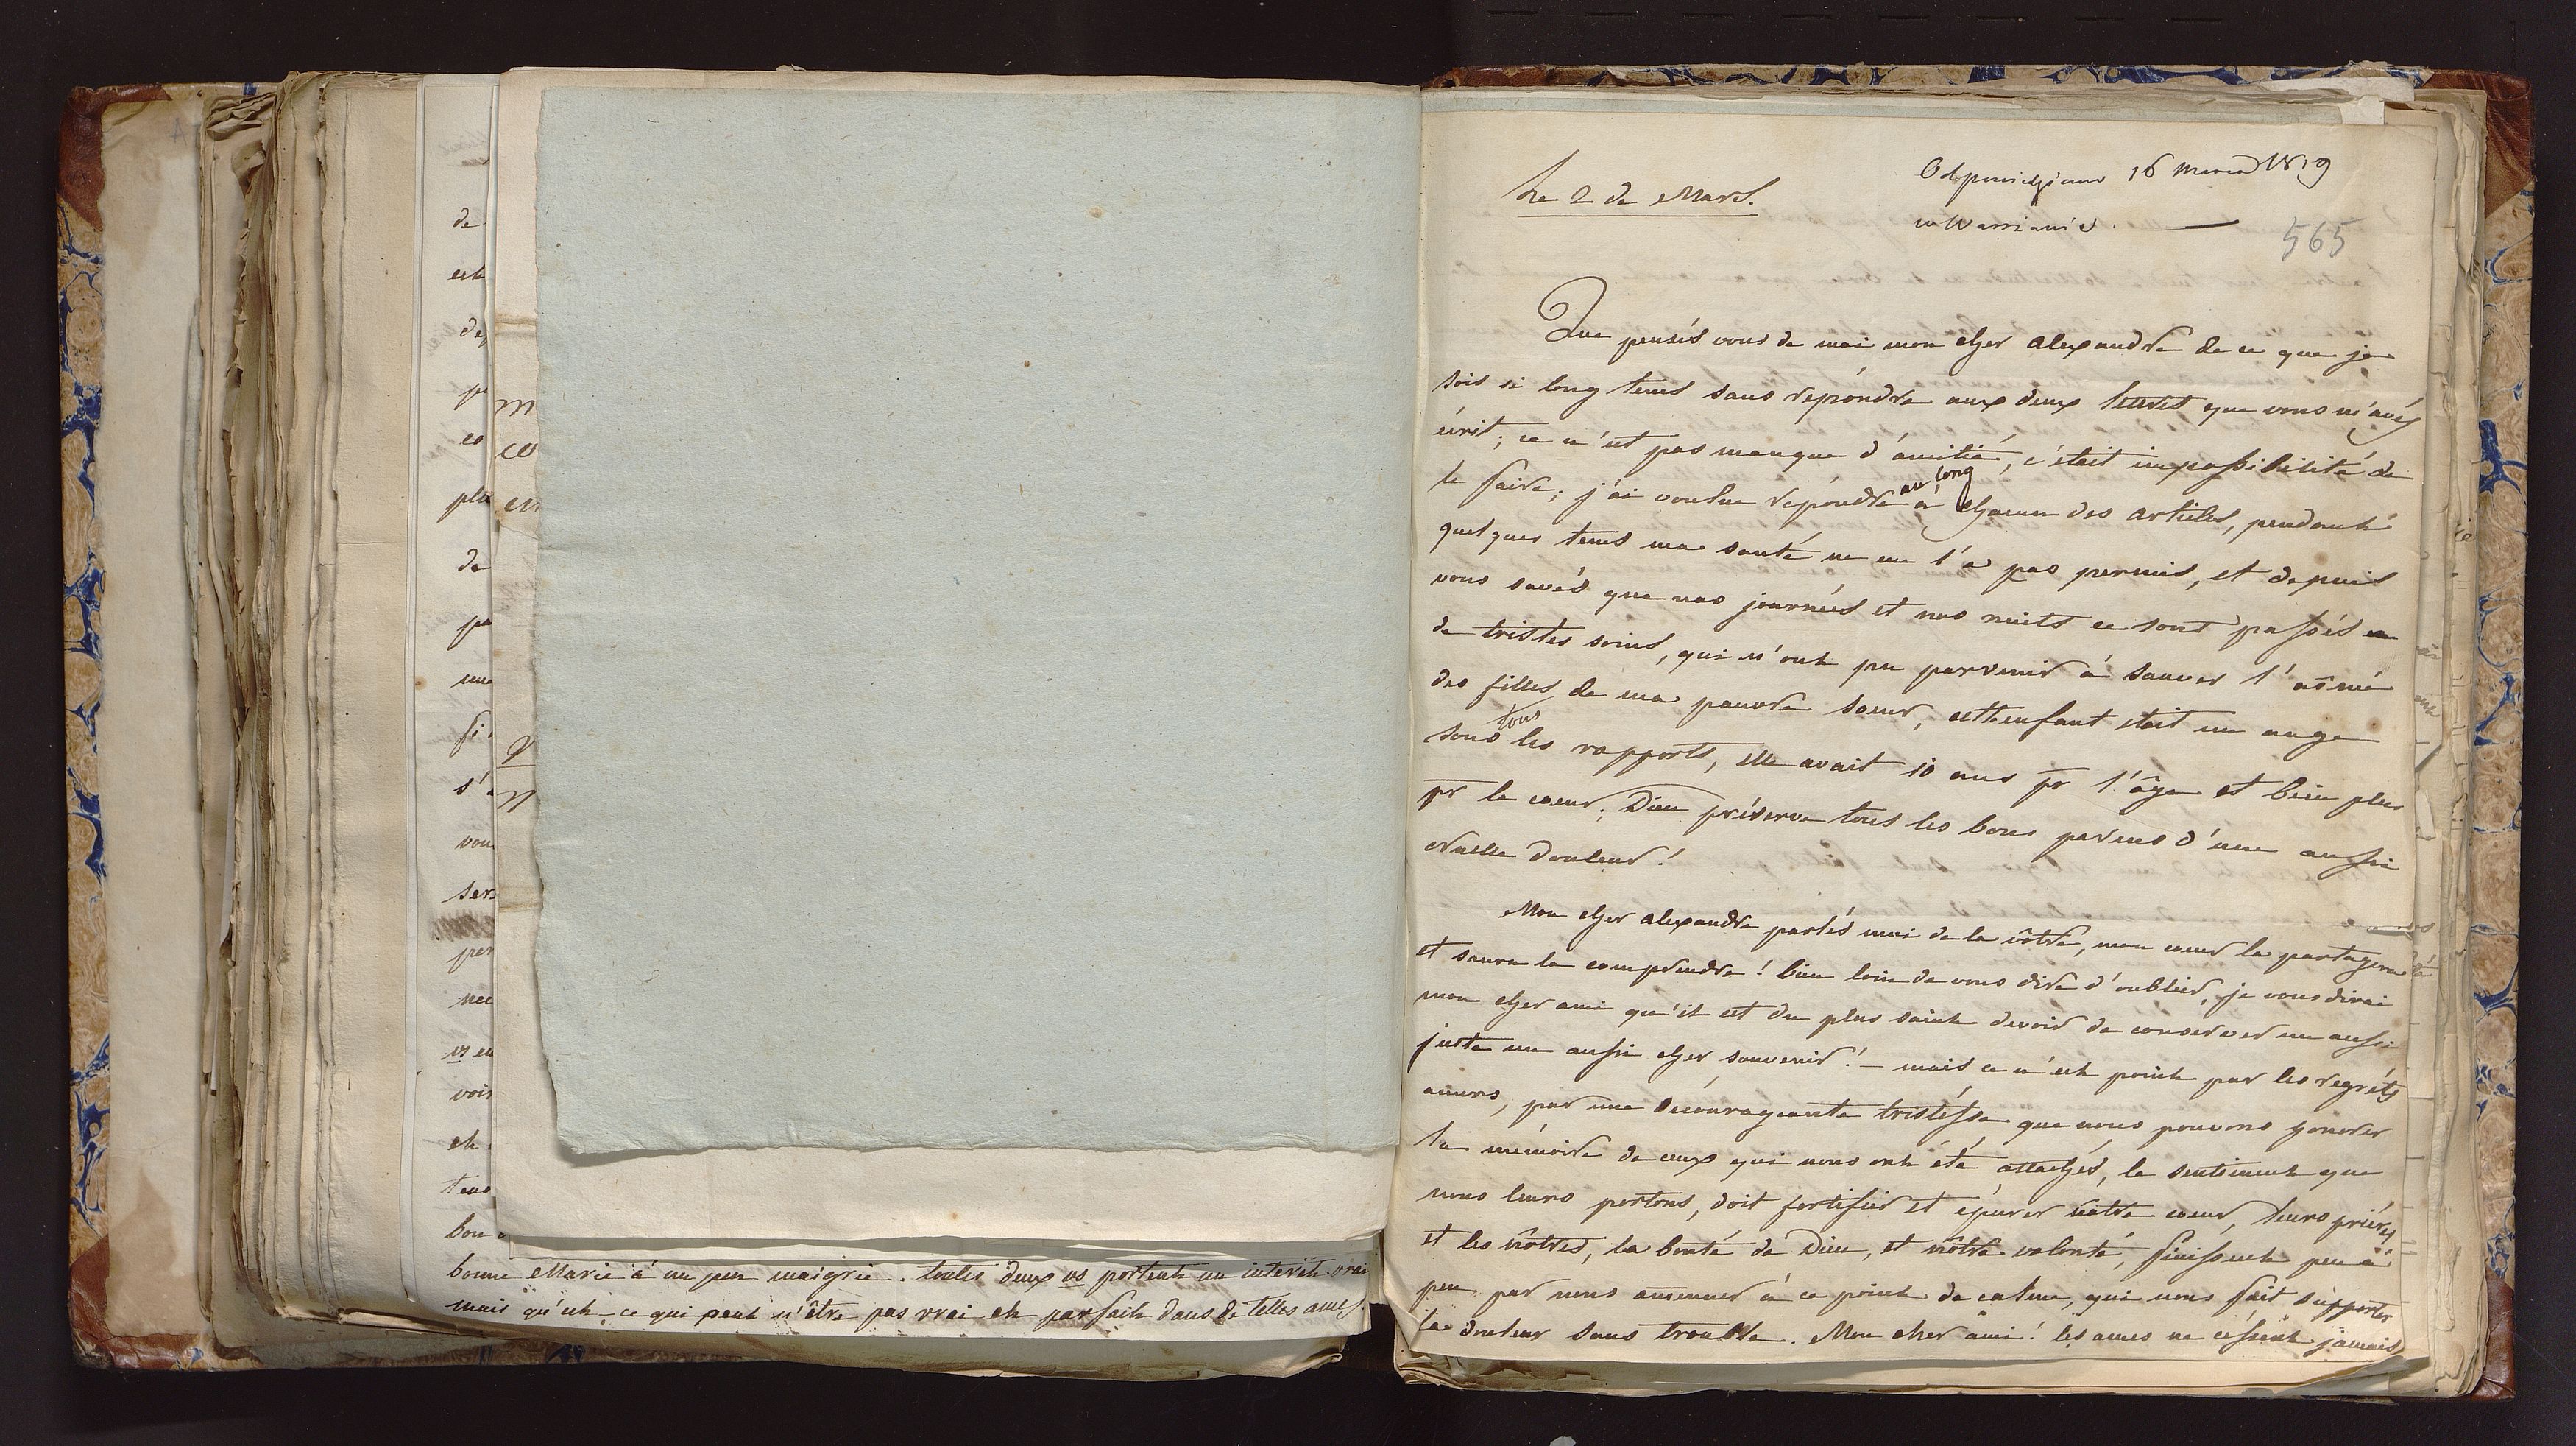 de
est
de
pe
co
plu
de
pa
une
si
s'
vou
ser
per
nec
vs en
vois
et
tems
bon
m
co
en
bonne Marie à un peu maigrie. toutes deux vs portent un interêt vrai
mais qu'est-ce qui peut n'être pas vrai et parfait dans de telles ames.
Le 2 de Mars.
Odpowidziano 16 Marca 1819
w Warszawie.
565
Que pensés vous de moi mon cher Alexandre de ce que je
sois si long tems sans repondre aux deux lettres que vous m'avés
écrit; ce n'est pas manque d'amitié, c'était impossibilité de
le faire; j'ai voulue repondre au long à chacun des articles, pendant
quelques tems ma santé ne me l'a pas permis, et depuis
vous savés que nos journées et nos nuits ce sont passés en
de tristes soins, qui n'ont pu parvenir à sauver l'ainé
des filles de ma pauvre soeur, cett enfant etait un ange
sous tous les rapports, elle avait 10 ans pr l'âge et bien plus
pr le coeur; Dieu préserve tous les bons parens d'une aussi
cruelle douleur!
Mon cher Alexandre parlés moi de la vôtre, mon coeur la partagera
et saura la comprendre! bien loin de vous dire d'oublier, je vous dirai
mon cher ami qu'il est du plus saint devoir de conserver un aussi
juste un aussi cher souvenir! - mais ce n'est point par les regréts
amers, par une décourageante tristésse que nous pouvons honorer
la mémoire de ceux qui nous ont été attachés, le sentiment que
nous leurs portons, doit fortifier et épurer nôtre coeur, leurs priéres
et les nôtres, la bonté de Dieu, et nôtre volonté, finissent peu à
peu par nous ammener à ce point de calme, qui nous fait supporter
la douleur sans trouble. Mon cher ami! les ames ne céssent jamais